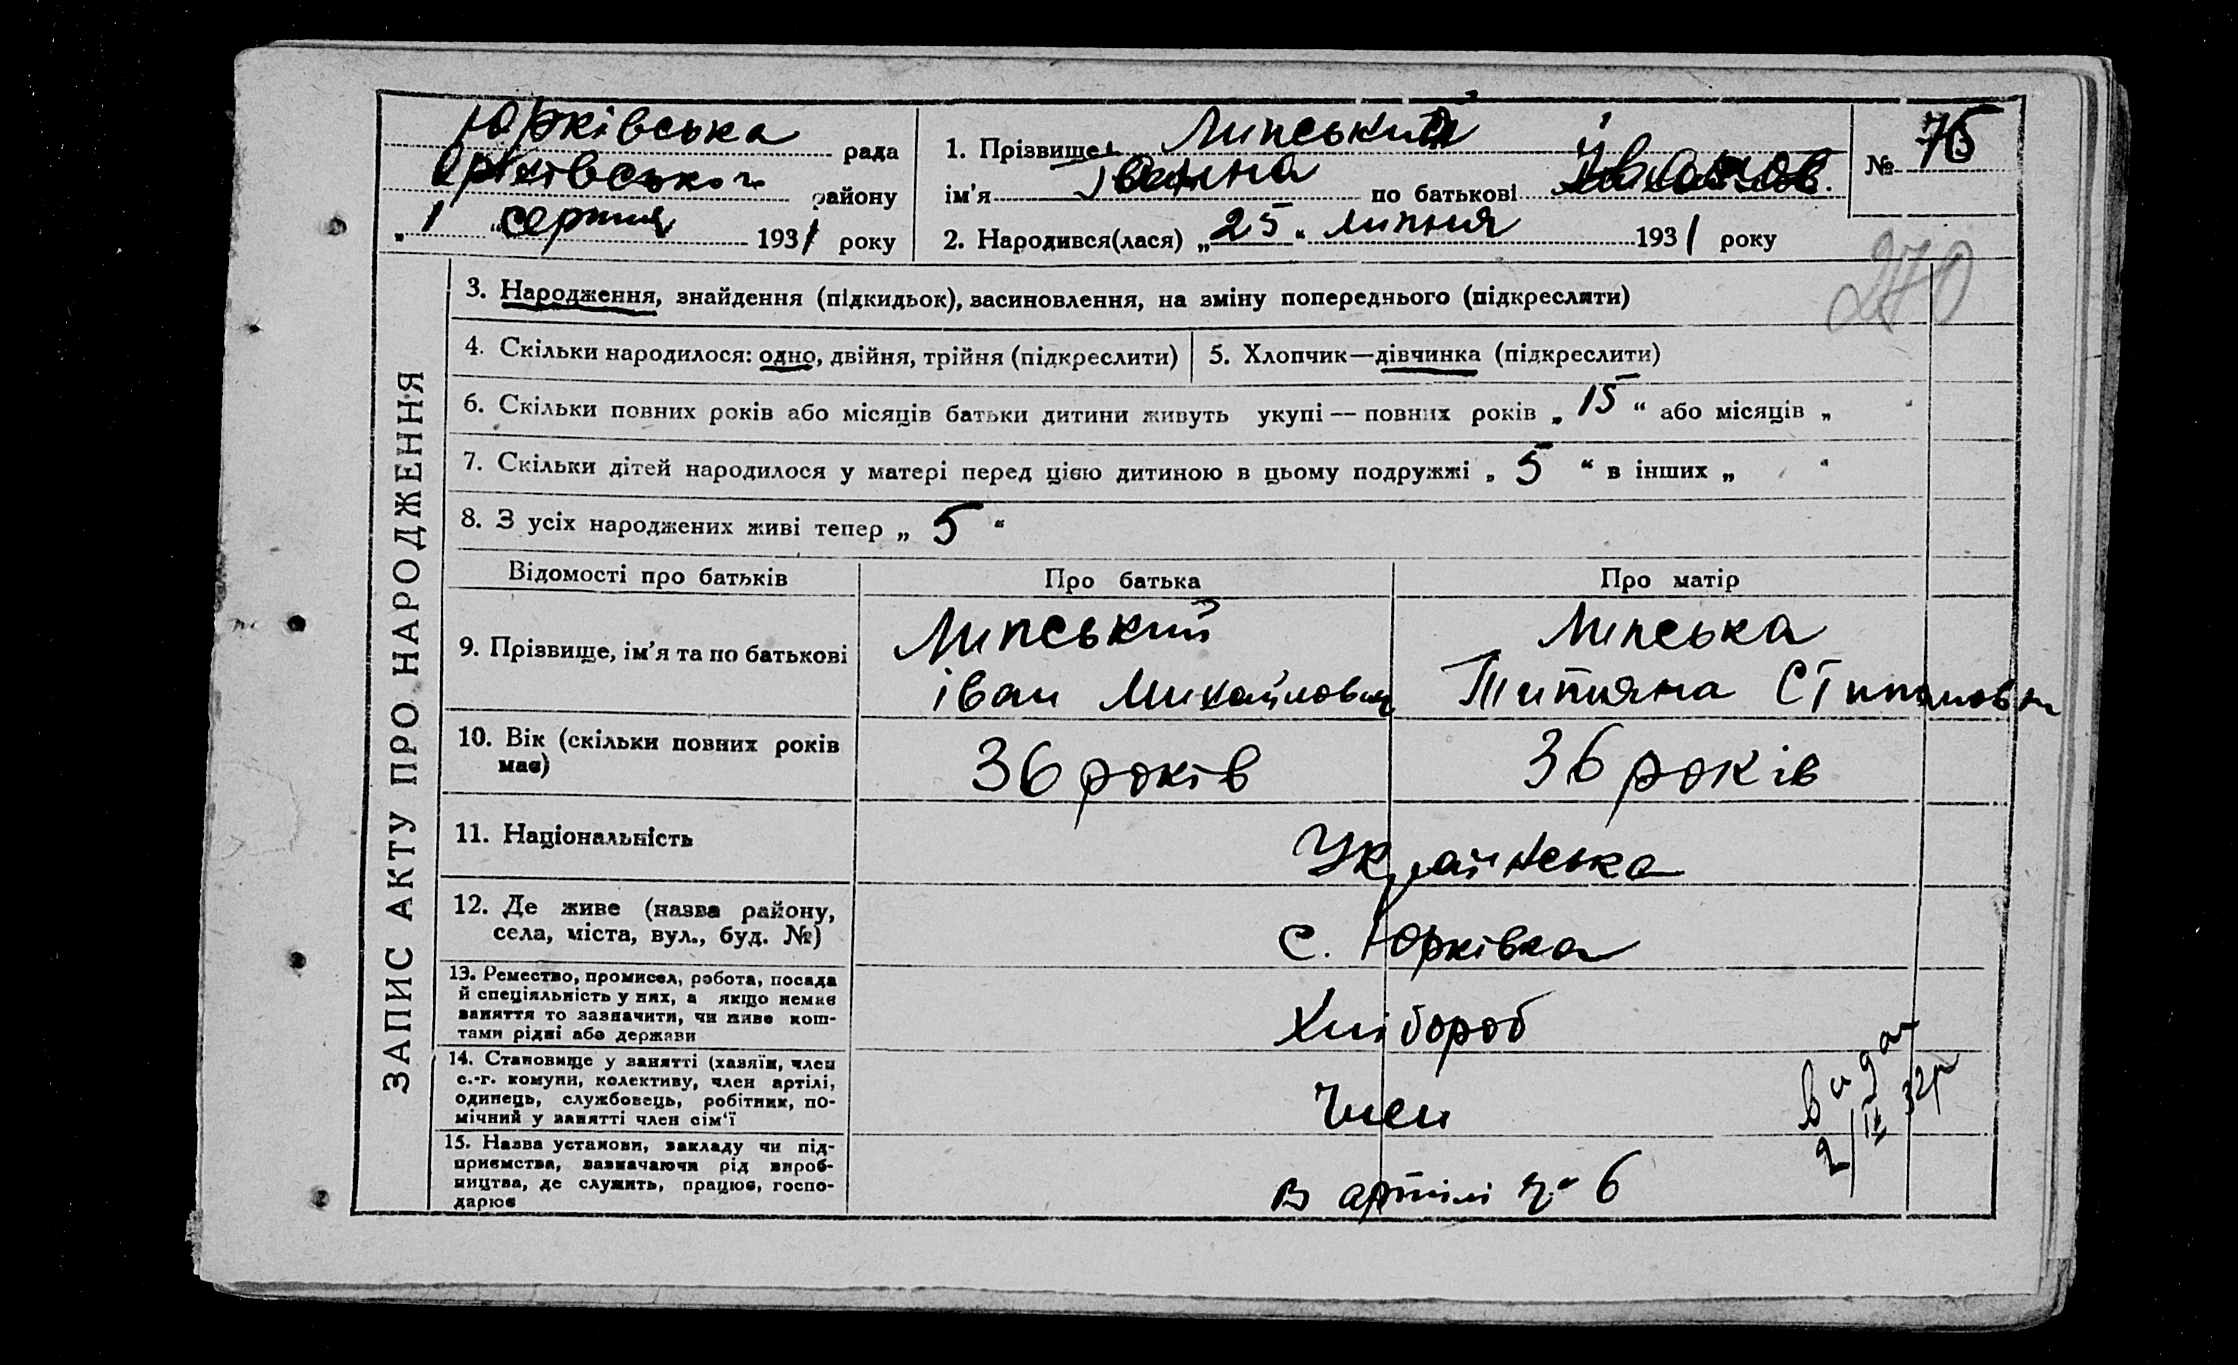 Юрківська рада
району
„ 1 “ серпня 1931 року
1. Прізвище Липський
ім'я Іванна по батькові
2. Народився(лася) „ 25 “ липня 1931 року
№ 75
270
ЗАПИС АКТУ ПРО НАРОДЖЕННЯ
3. Народження, знайдення (підкидьок), засиновлення, на зміну попереднього (підкреслити)
4. Скільки народилося: одно, двійня, трійня (підкреслити)
5. Хлопчик—дівчинка (підкреслити)
6. Скільки повних років або місяців батьки дитини живуть укупі — повних років „ 15 “ або місяців „ “
7. Скільки дітей народилося у матері перед цією дитиною в цьому подружжі „ 5 “ в інших „ “
8. З усіх народжених живі тепер „ 5 “
Відомості про батьків
Про батька
Про матір
9. Прізвище, ім'я та по батькові
Липський
іван Михайлович
Липська
Титяна Стипановна
10. Вік (скільки повних років
має)
36 років
36 років
11. Національність
Українська
12. Де живе (назва району,
села, міста, вул., буд. №)
с. Юрківка
13. Ремество, промисел, робота, посада
й спеціяльність у них, а якщо немає
заняття то зазначити, чи живе кош-
тами рідні або держави
Хлібороб
14. Становище у занятті (хазяїн, член
с.-г. комуни, колективу, член артілі,
одинець, службовець, робітник, по-
мічний у занятті член сім'ї
Член
15. Назва установи, закладу чи під-
приємства, зазначаючи рід вироб-
ництва, де служить, працює, госпо-
дарює
в артілі № 6
32р